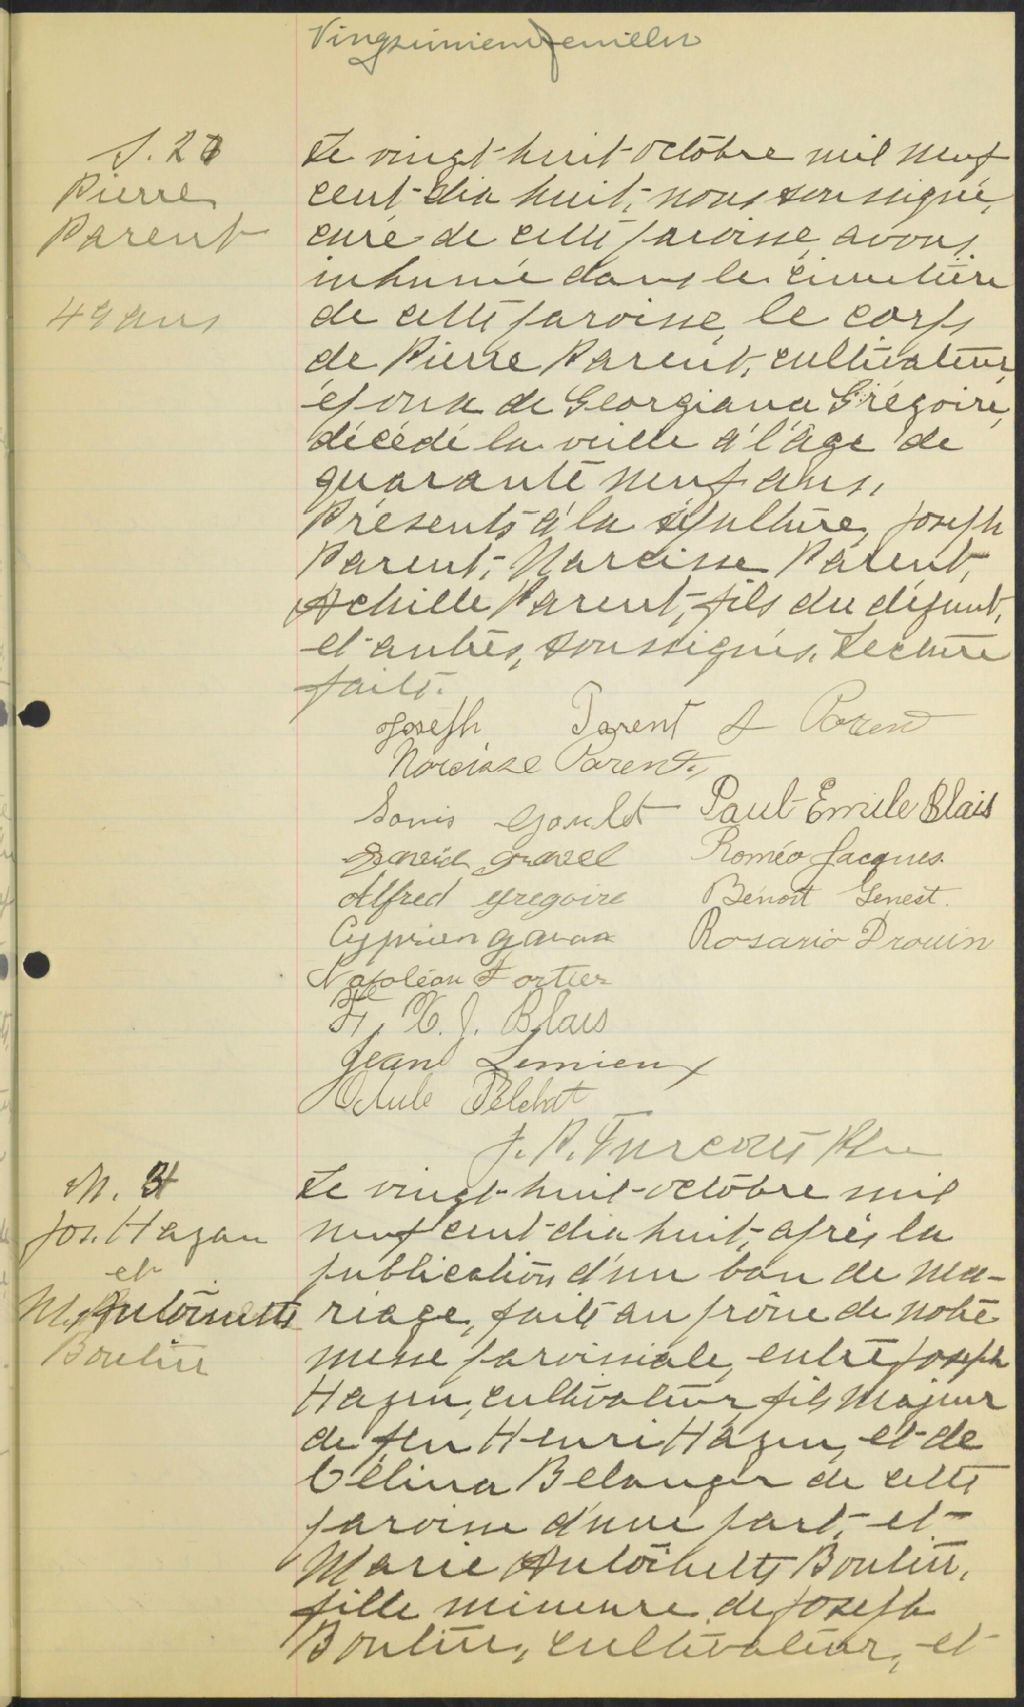 Vingtunieme feuillet
S. 27
Pierre
Parent
49 ans
Le vingt-huit octobre mil neuf
cent-dix huit, nous soussigné,
curé de cette paroisse, avons
inhumé dans le cimetière
de cette paroisse, le corps
de Pierre Parent, cultivateur,
époux de Georgiana Grégoire,
décédé la veille à l'âge de
quarante neuf ans.
Présents à la sépulture, Joseph
Parent, Narcisse Parent,
Achille Parent, fils du défunt,
et autres, soussignés. Lecture
faite.
Joseph Parent A Parent
Narcisse Parent
Louis Goulet Paul-Emile Blais
David Gravel Roméo Jacques.
Alfred Gregoire Benoit Genest.
Cyprien Rosario Drouin
Napoléon Fortier
F. X. J. Blais
Jean Lemieux
Pelchat
J. A. Turcotte Ptre
M. 3
Jos. Hazen
et
M. Antoinette
Boutin
Le vingt-huit-octobre mil
neuf cent-dix huit, après la
publication d'un ban de ma-
riage, faite au prône de notre
messe paroissiale, entre Joseph
Hazen, cultivateur, fils majeur
de feu Henri Hazen, et de
Célina Belanger de cette
paroisse d'une part, et
Marie Antoinette Boutin,
fille mineure de Joseph
Boutin, cultivateur, et